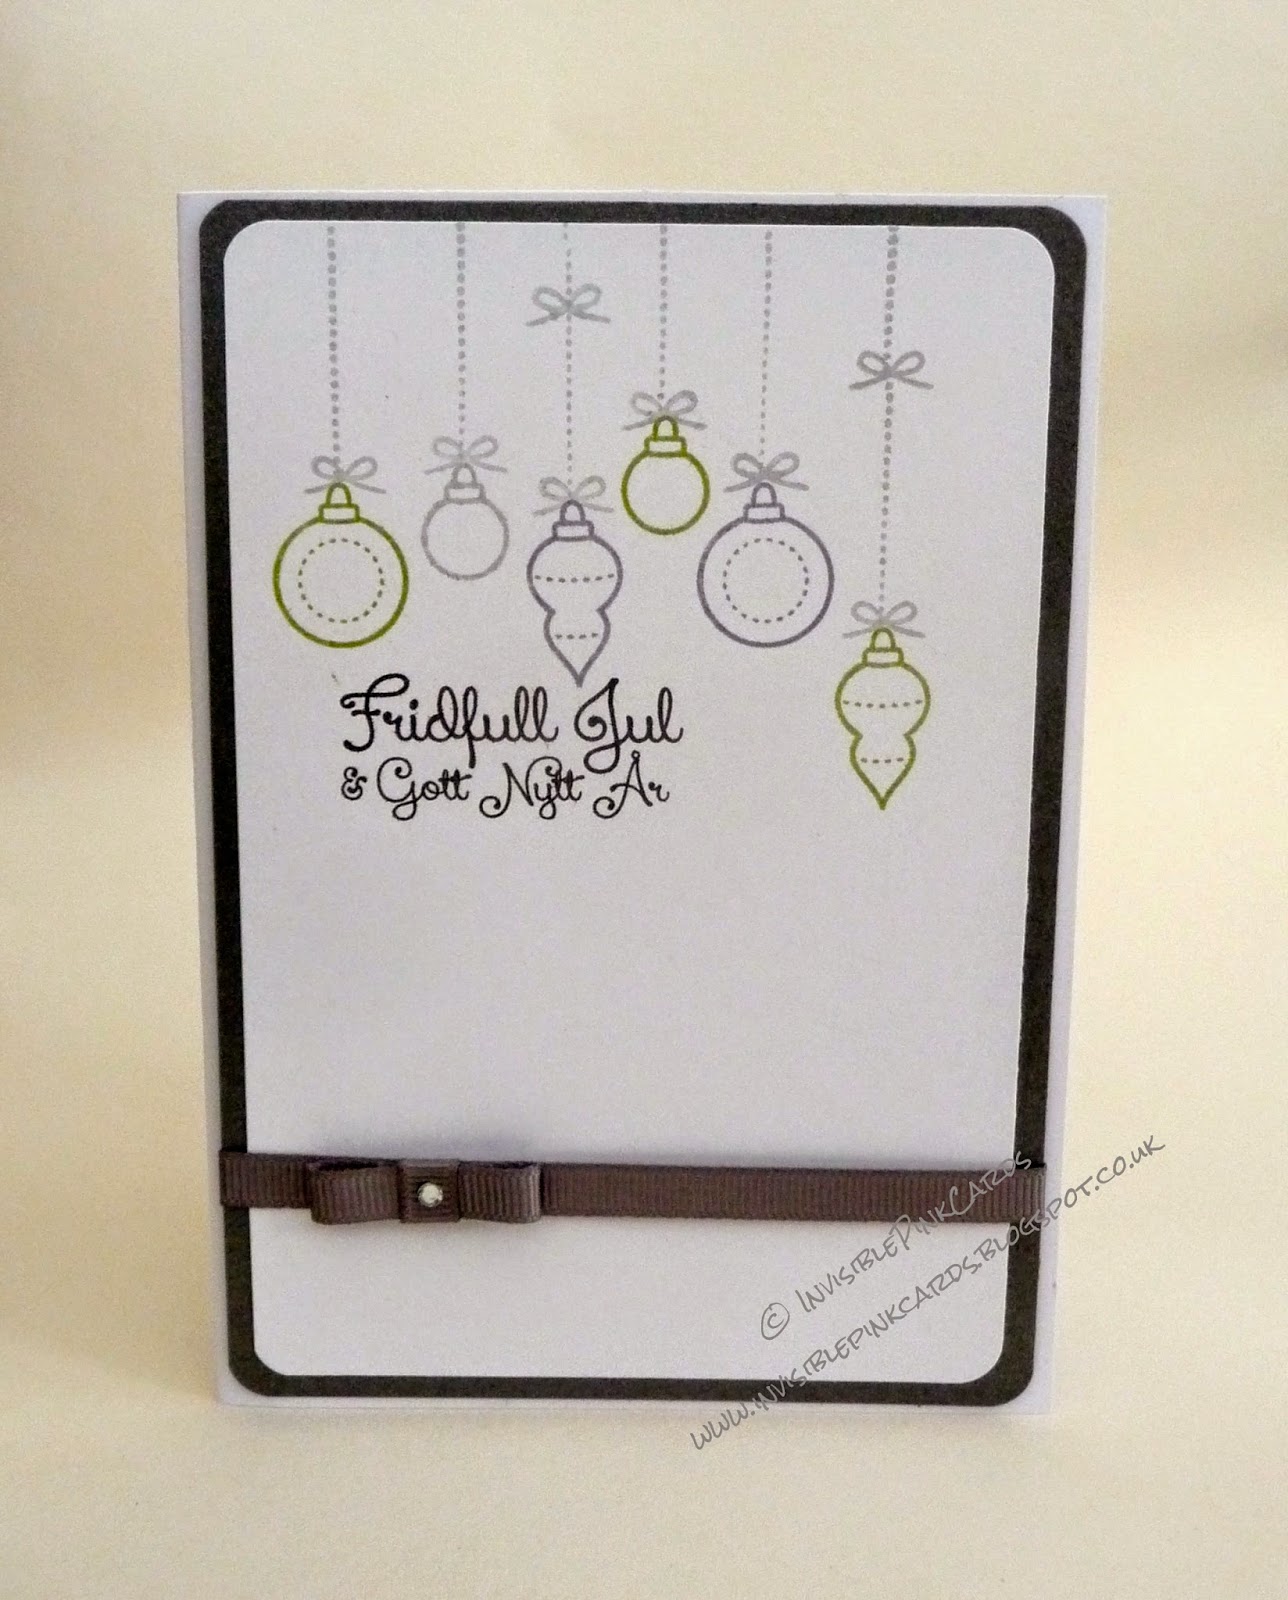 Fridfull Jul
& Gott Nytt År
© InvisiblePinkCards
www.invisiblepinkcards.blogspot.co.uk